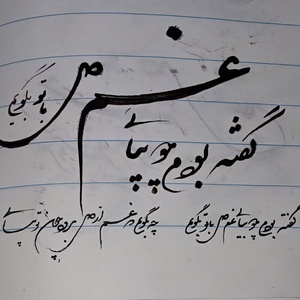 گفته بودم چو بیائی
غم دل با تو بگویم
گفته بودم چو بیائی غم دل با تو بگویم چه بگویم که غم از دل برود چون تو بیائی